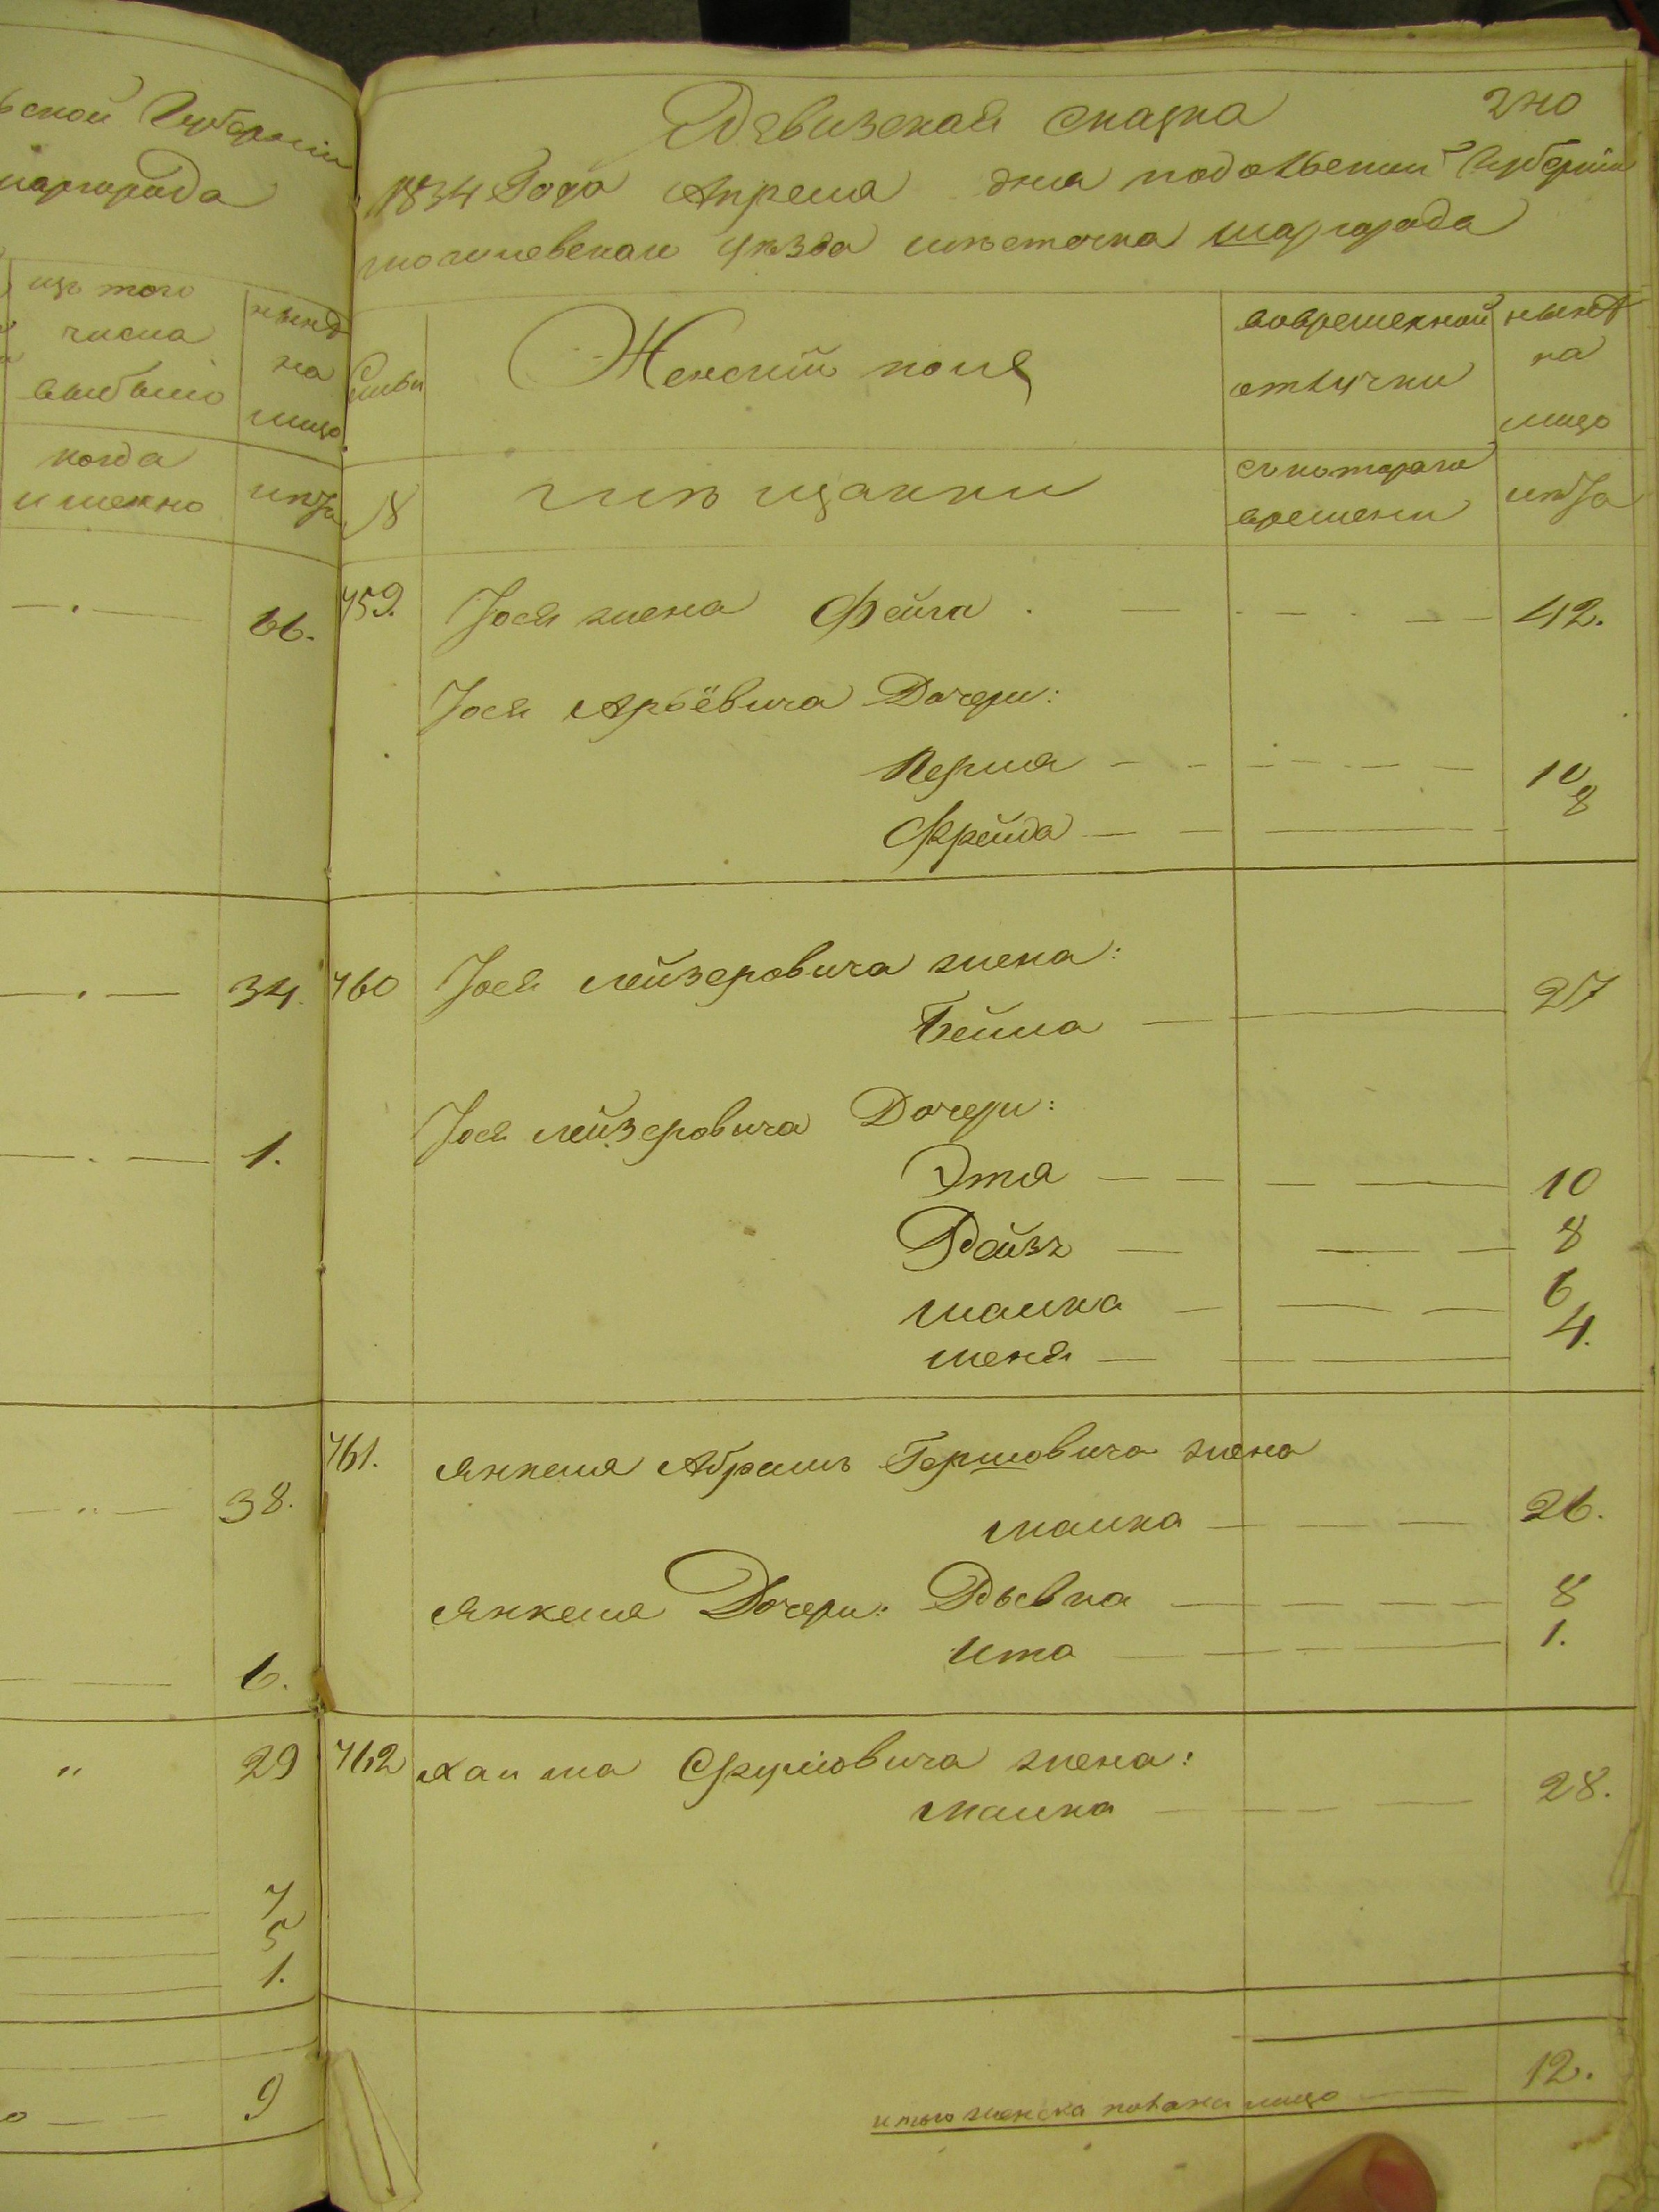 ьской Губерніи
шаргорода
изъ того
числа
выбыло
нынѣ
на
лицо
когда
именно
лѣта
66.
34.
1.
38.
6.
29
7
5
1.
9
Ревизская сказка
1834 Года Апреля дня подольской Губерніи
могилевскаго уѣзда мѣстечка шаргорода
Семьи
Женскій полъ
вовременной
отлучки
нынѣ
на
лицо
№
мѣщанки
съ котораго
времени
лѣта
759. Iося жена Фейга 42.
Iося Арьёвича Дочери:
Перля 10
Фрейда 8
760 Iося лейзеровича жена:
Бейла 27
Iося лейзеровича Дочери:
Этя 10
Рейзъ 8
малка 6
шеня 4.
761. Янкеля Абрамъ Гершовича жена
малка 26.
Янкеля Дочери: Рывка 8
Ита 1.
762 хаима Сруліовича жена:
малка 28.
итого женска пола на лицо 12.